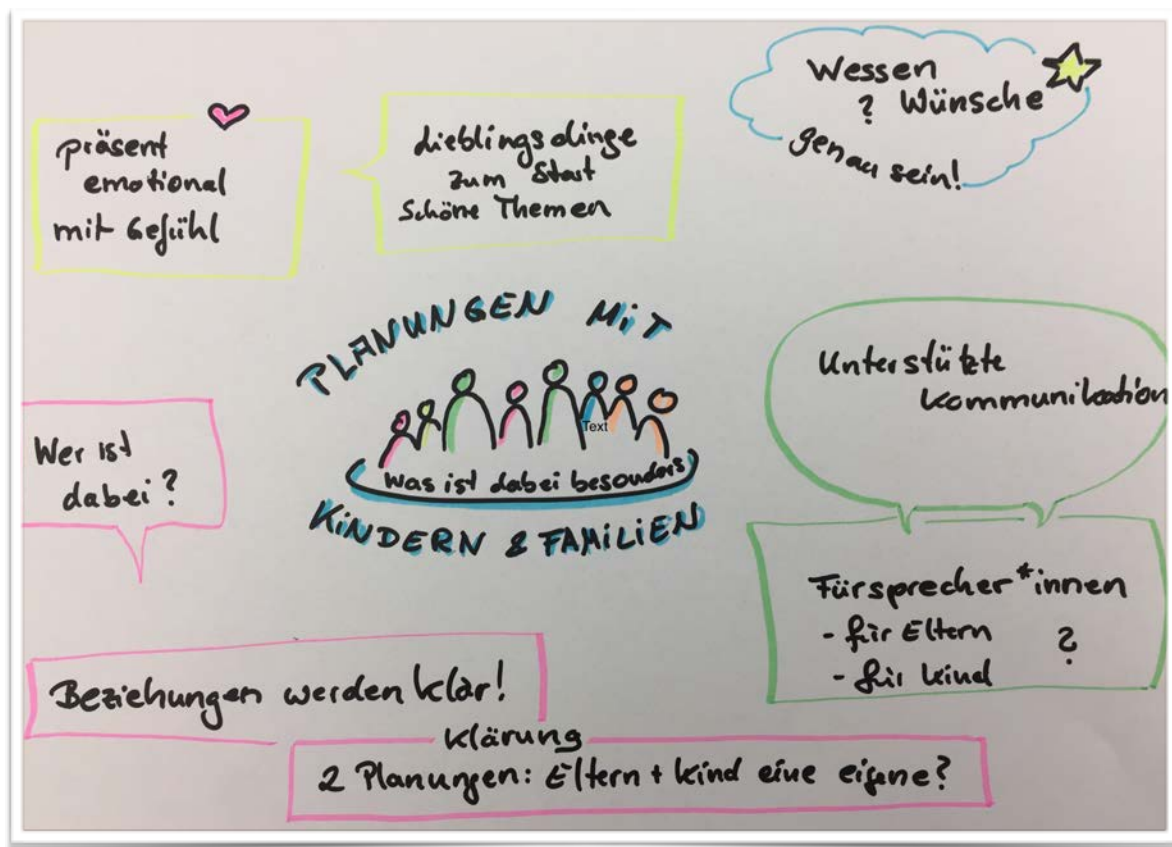 präsent
emotional
mit Gefühl
Lieblingsdinge
zum Start
Schöne Themen
Wessen
? Wünsche
genau sein!
PLANUNGEN MiT
Text
Was ist dabei besonders
KiNDERN & FAMiLiEN
Unterstützte
Kommunikation
Wer ist
dabei?
Fürsprecher*innen
- für Eltern
?
- für Kind
Beziehungen werden klar!
Klärung
2 Planungen: Eltern + Kind eine eigene?